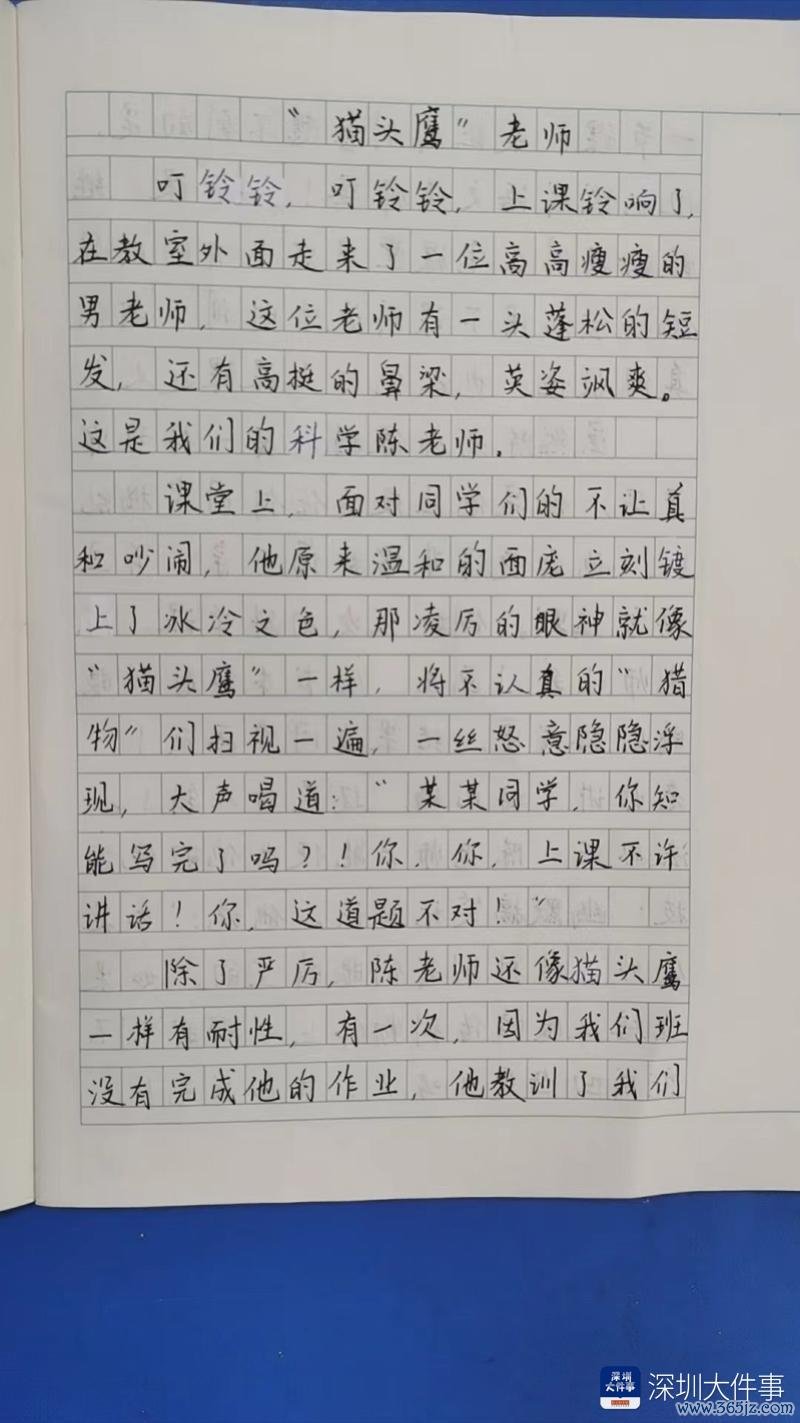 “猫头鹰”老师
叮铃铃，叮铃铃，上课铃响了，
在教室外面走来了一位高高瘦瘦的
男老师，这位老师有一头蓬松的短
发，还有高挺的鼻梁，英姿飒爽。
这是我们的科学陈老师．
课堂上，面对同学们的不让真
和吵闹，他原来温和的面庞立刻镀
上了冰冷之色，那凌厉的眼神就像
“猫头鹰”一样，将不认真的“猎
物”们扫视一遍，一丝怒意隐隐浮
现，大声喝道：“某某同学，你知
能写完了吗？！你，你，上课不许
讲话！你，这道题不对！”
除了严厉，陈老师还像猫头鹰
一样有耐性，有一次，因为我们班
没有完成他的作业，他教训了我们
深圳大件事
深圳大件事
www.365jz.com